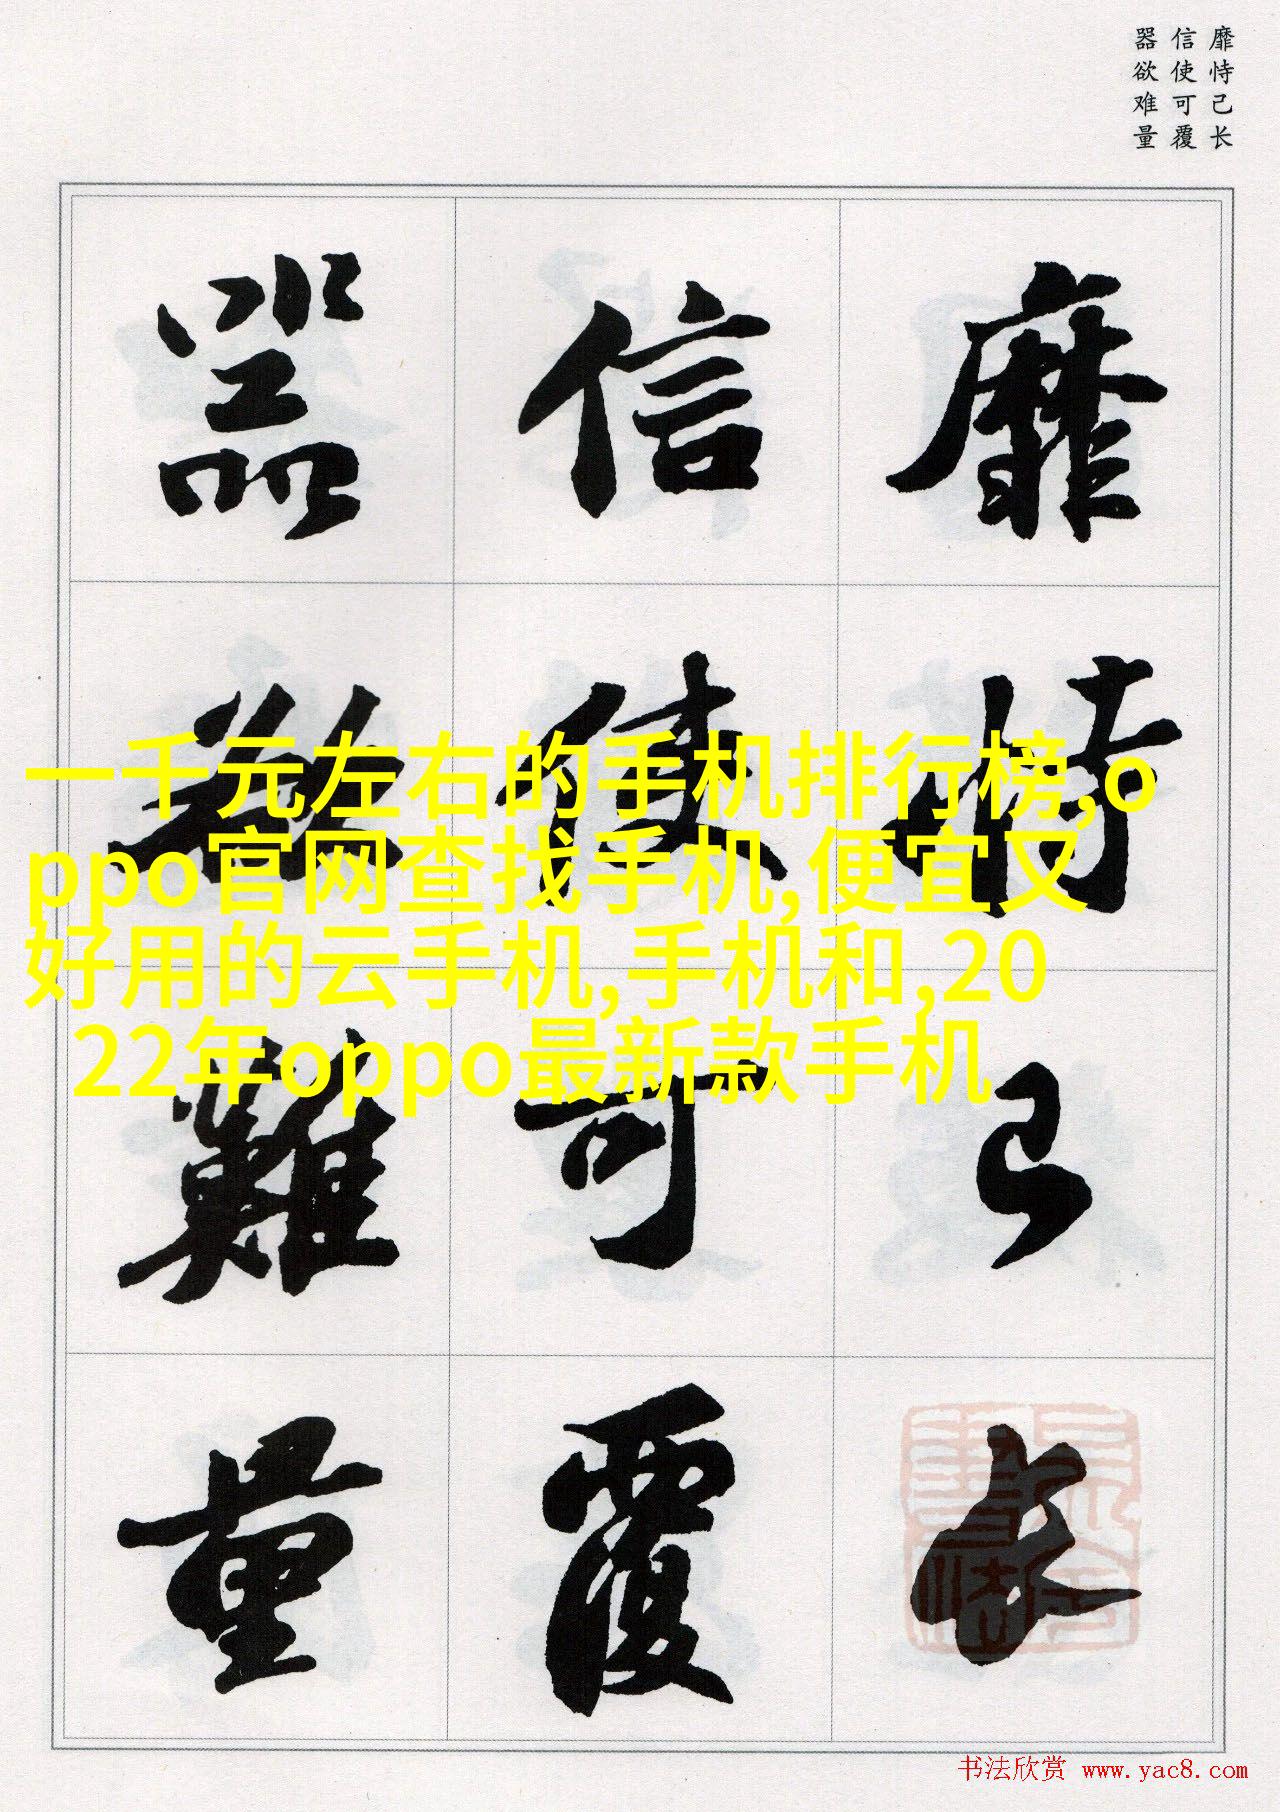 靡恃己长
信使可覆
器欲难量
靡恃己长
信使可覆
器欲難量
一千元左右的手机排行榜,o
ppo官网查找手机,便宜又
好用的云手机,手机和,20
22年oppo最新款手机
书法欣赏 www.yac8.com